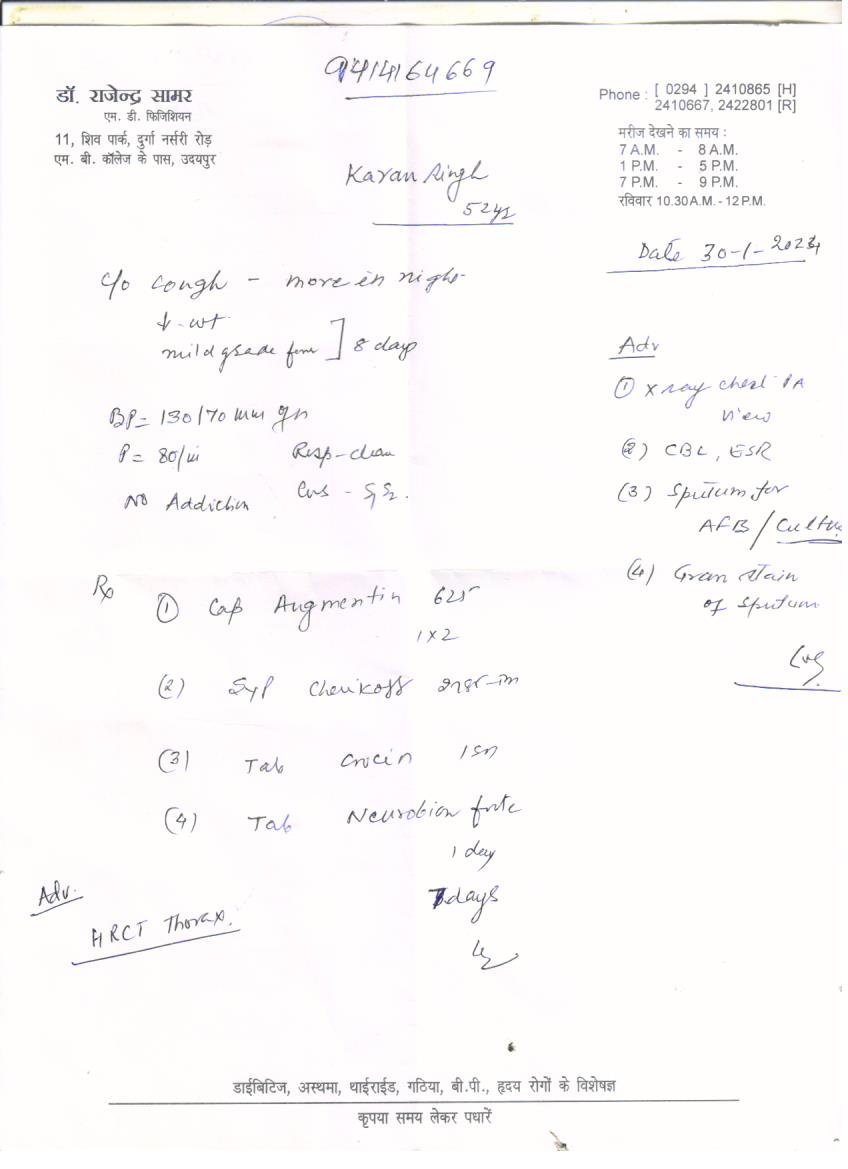 9414164669
डॉ. राजेन्द्र सामर
एम. डी. फिजिशियन
11, शिव पार्क, दुर्गा नर्सरी रोड़
एम. बी. कॉलेज के पास, उदयपुर
Phone : [ 0294 ] 2410865 [H]
2410667, 2422801 [R]
मरीज देखने का समय :
7 A.M. - 8 A.M.
1 P.M. - 5 P.M.
7 P.M. - 9 P.M.
रविवार 10.30 A.M. - 12 P.M.
Karan Singh
52 yrs
Date 30-1-2024
c/o cough - more in night
↓ wt
mild grade ] 8 days
BP = 130/70 mm
P = 80/ Resp - clear
No Addiction Cvs - S1 S2.
Adv
① X ray chest PA
view
(2) CBC, ESR
(3) Sputum for
AFB / Culture
(4) Gram stain
of Sputum
Rx
① Cap Augmentin 625
1 x 2
(2) Syp
(3) Tab Crocin
(4) Tab Neurobion forte
1 day
7 days
Adv.
HRCT Thorax.
डाईबिटिज, अस्थमा, थाईराईड, गठिया, बी.पी., हृदय रोगों के विशेषज्ञ
कृपया समय लेकर पधारें